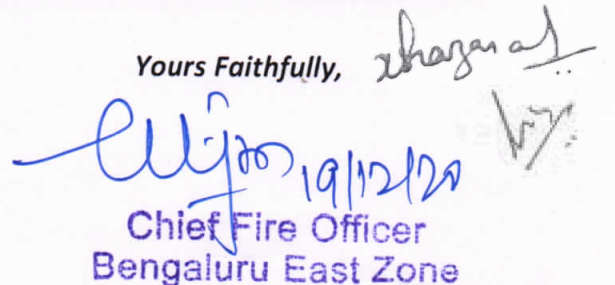 Yours Faithfully,
19/12/20
Chief Fire Officer
Bengaluru East Zone